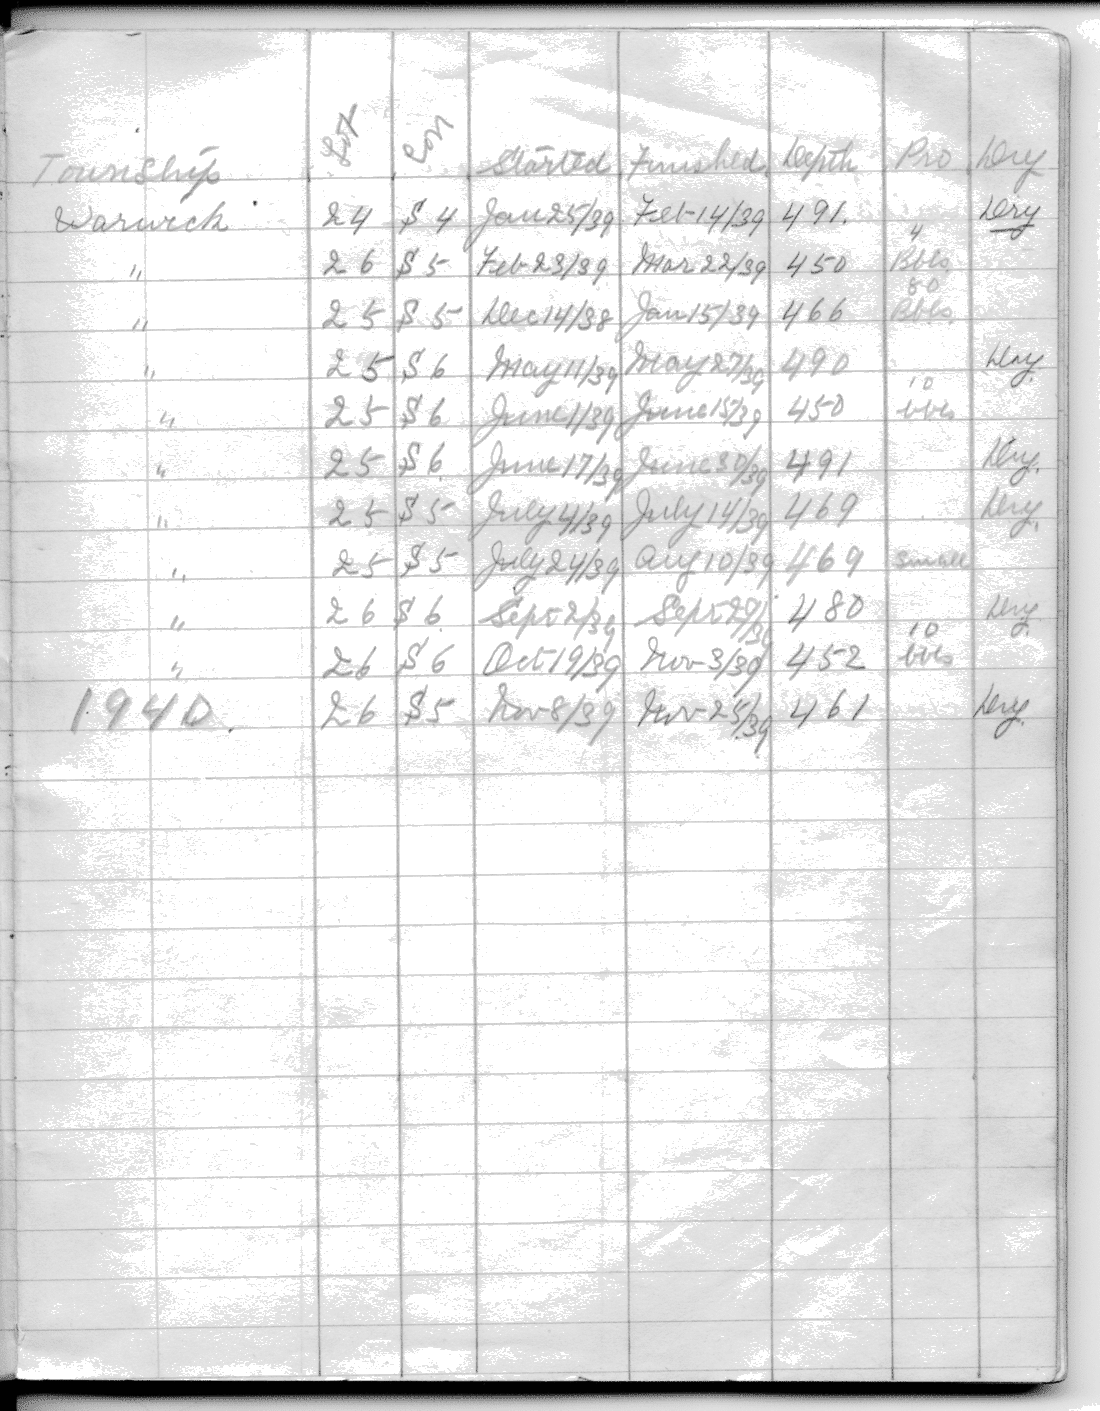 Township Lot Con Started Finished Depth Pro Dry
Warwick 24 $ 4 Jan 25/39 Feb-14/39 491. Dry
" 26 $ 5 Feb 23/39 Mar 22/39 450 4 Bbls.
" 25 $ 5 Dec 14/38 Jan 15/39 466 80 Bbls.
" 25 $ 6 May 11/39 May 27/39 490 Dry.
" 25 $ 6 June 1/39 June 15/39 450 10 bbls
" 25 $ 6. June 17/39 June 30/39 491 Dry.
" 25 $ 5 July 4/39 July 14/39 469 Dry.
" 25 $ 5 July 24/39 Aug 10/39 469 small
" 26 $ 6. Sept 2/39 Sept 29/39 480 Dry.
" 26 $ 6 Oct 19/39 Nov 3/39 452 10 bbls
1940. 26 $ 5 Nov 8/39 Nov 25/39 461 Dry.